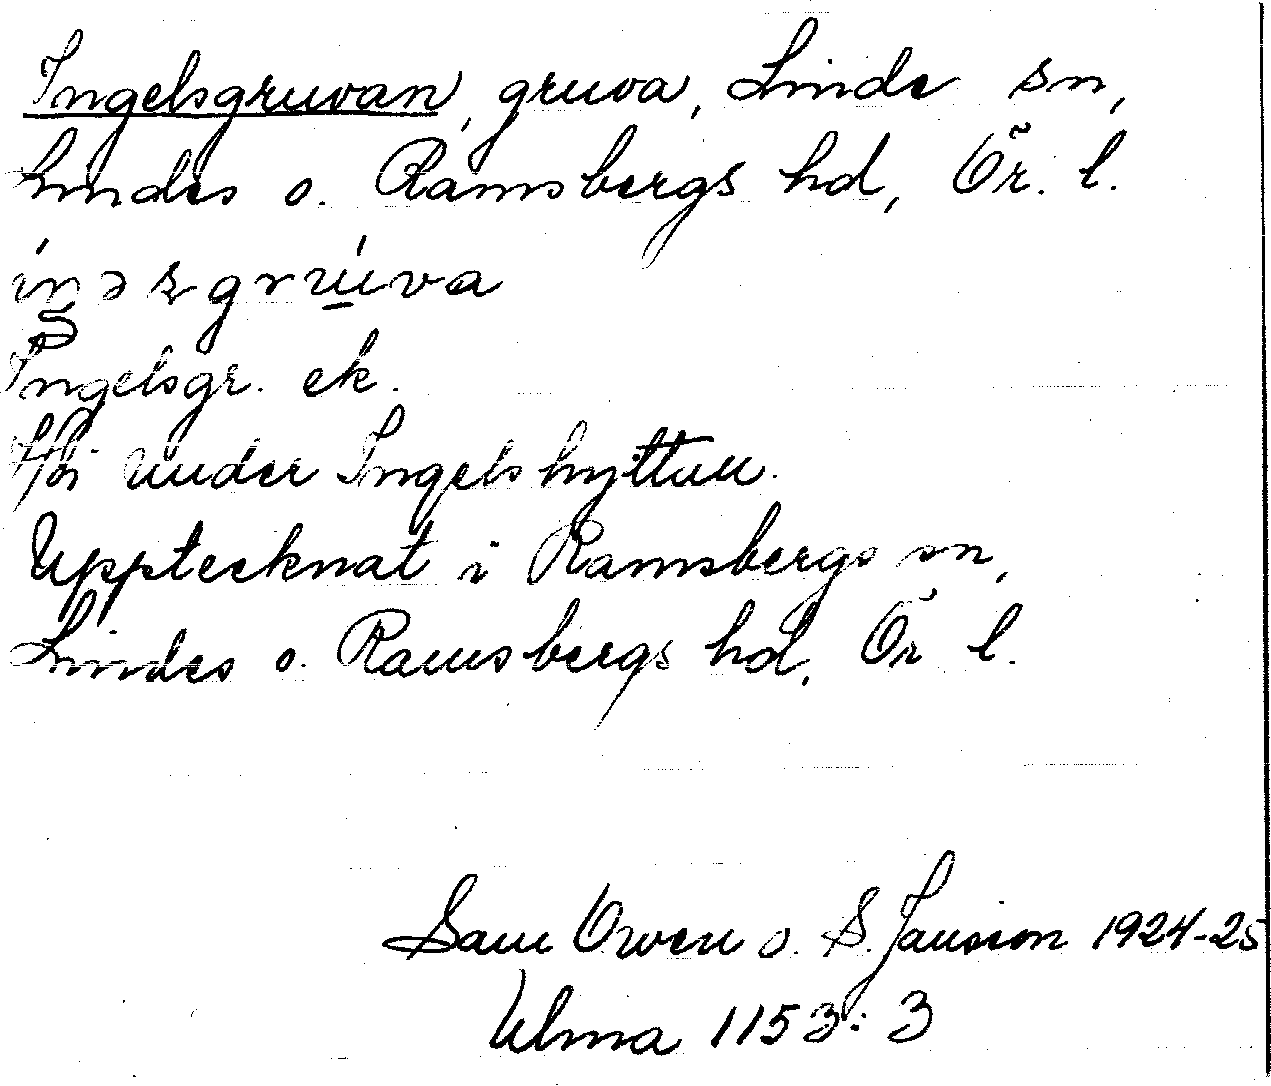 Ingelsgruvan, gruva, Linde sn,
Lindes o. Ramsbergs hd, Ör. l.
Ingelsgr. ek.
Hör under Ingelshyttan.
Upptecknat i Ramsbergs sn,
Lindes o. Ramsbergs hd, Ör l.
Sam Owen o. S. Janson 1924-25
Ulma 1153:3